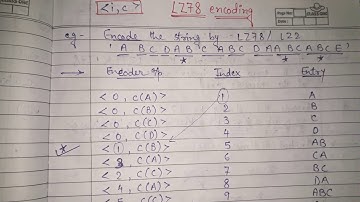 <i, c> LZ78 encoding
Page No:
Date:
eg- Encode the string by LZ78 / LZ2
' A B C D A B C A B C D A A B C A B C E '
Encoder o/p Index Entry
< 0, c(A) > 1 A
< 0, c(B) > 2 B
< 0, c(C) > 3 C
< 0, c(D) > 4 D
* < 1, c(B) > 5 AB
< 3, c(A) > 6 CA
< 2, c(C) > 7 BC
< 4, c(A) > 8 DA
9 ABC